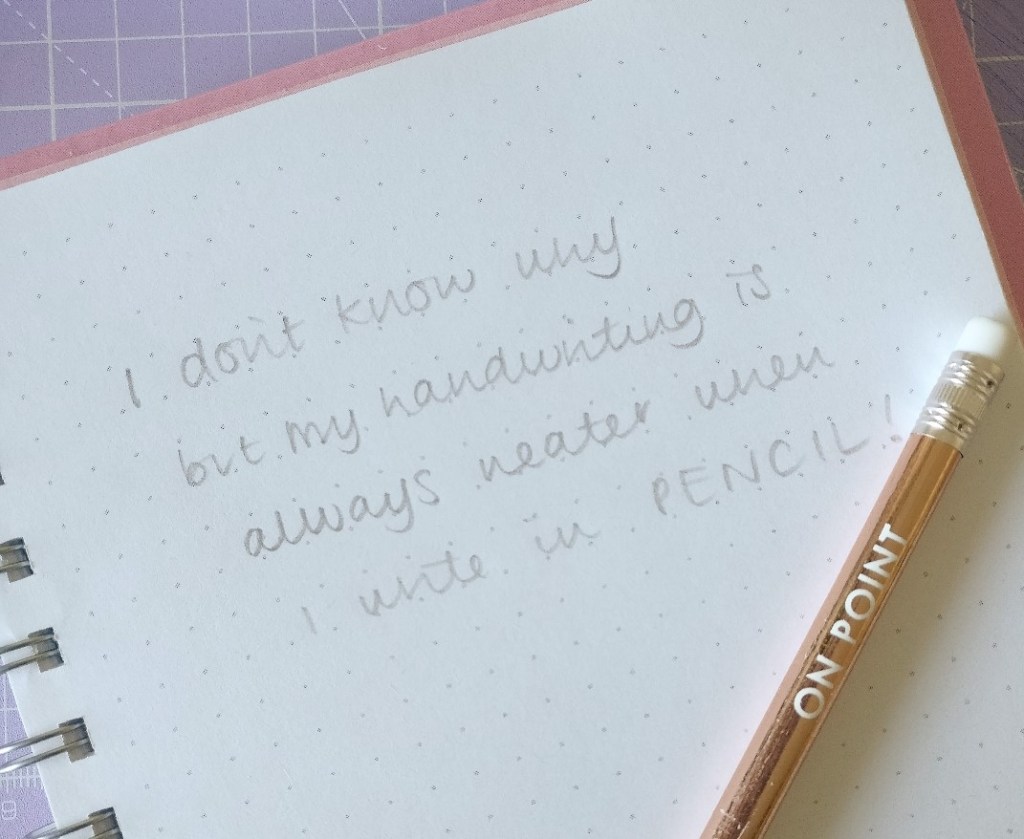 I don't know why
but my handwriting is
always neater when
I write in PENCIL!
ON POINT